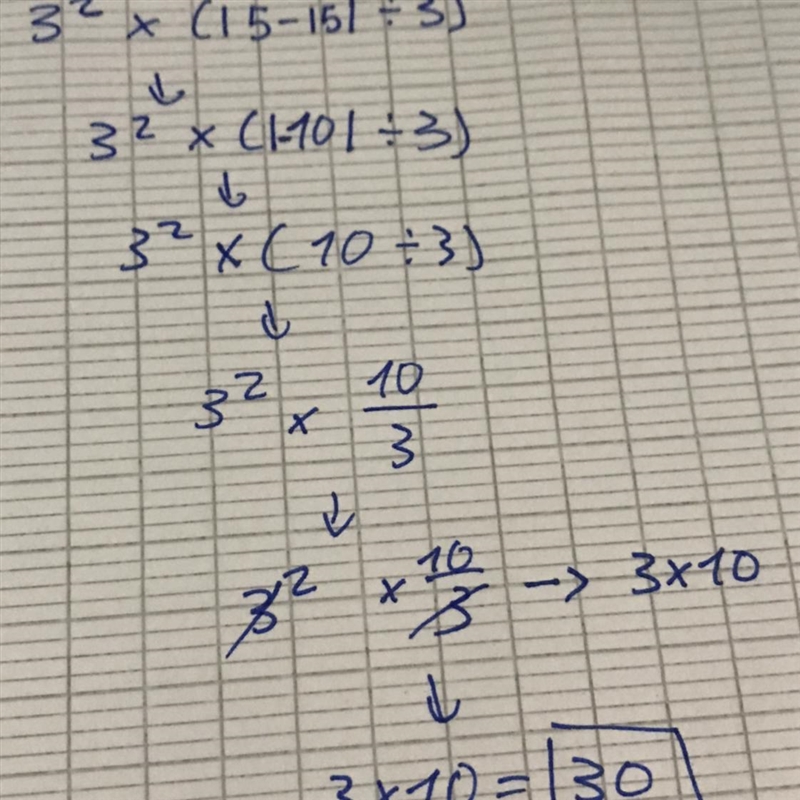 3² × (|5-15| ÷ 3)
↓
3² × (|-10| ÷ 3)
↓
3² × (10 ÷ 3)
↓
3² × 10/3
↓
3² × 10/3 → 3×10
↓
3×10 = 30